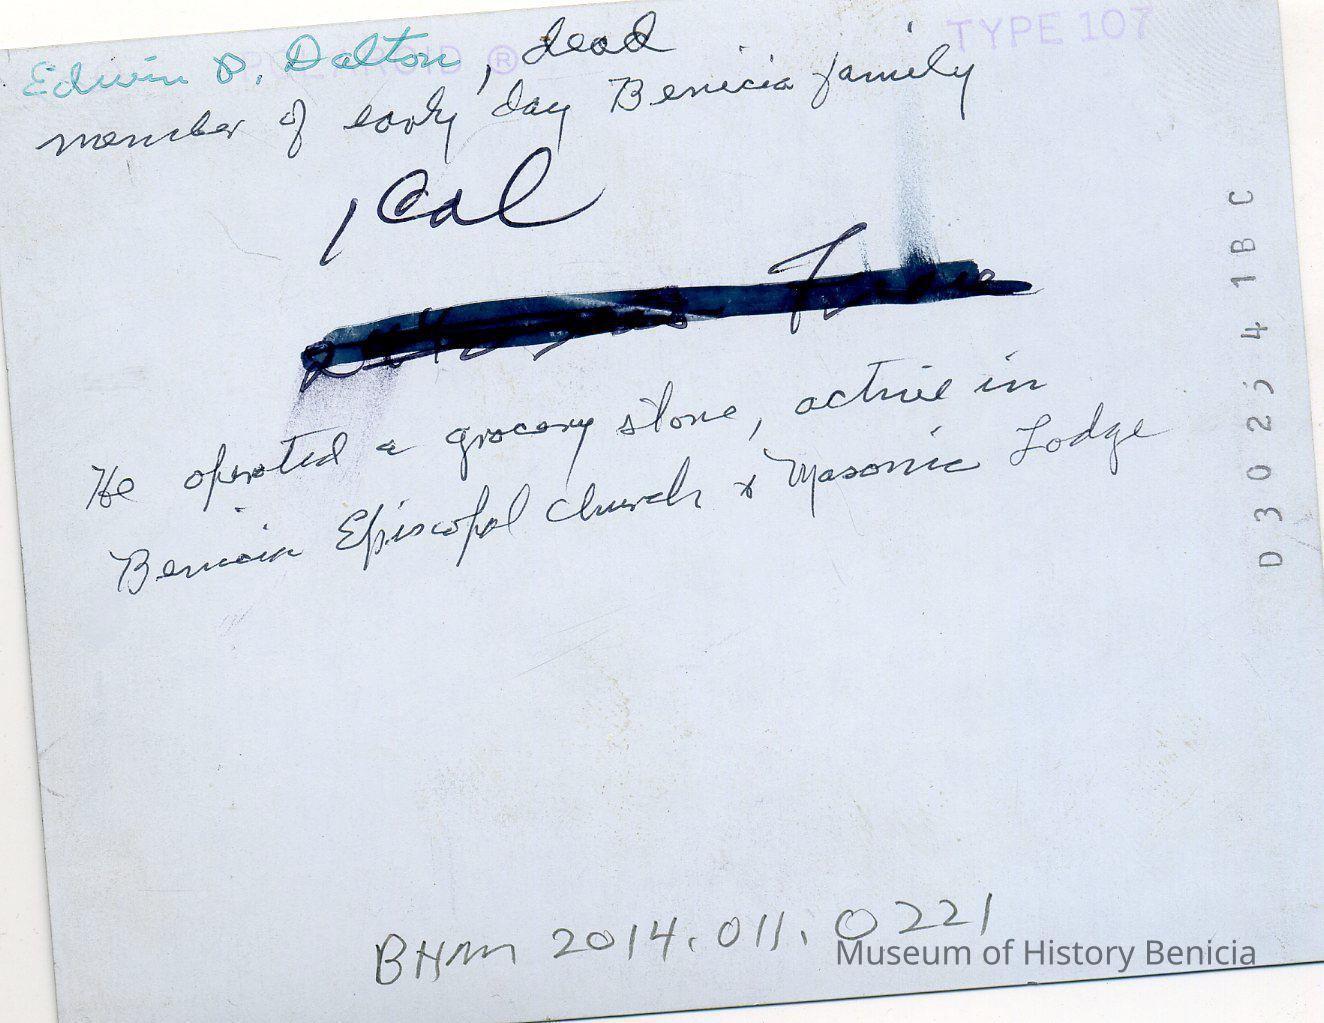 Edwin P. Dalton, dead
POLAROID ® TYPE 107
member of early day Benicia family
1 Col
He operated a grocery store, active in
Benicia Episcopal church & Masonic Lodge
D302541BC
BHM 2014.011.0221
Museum of History Benicia